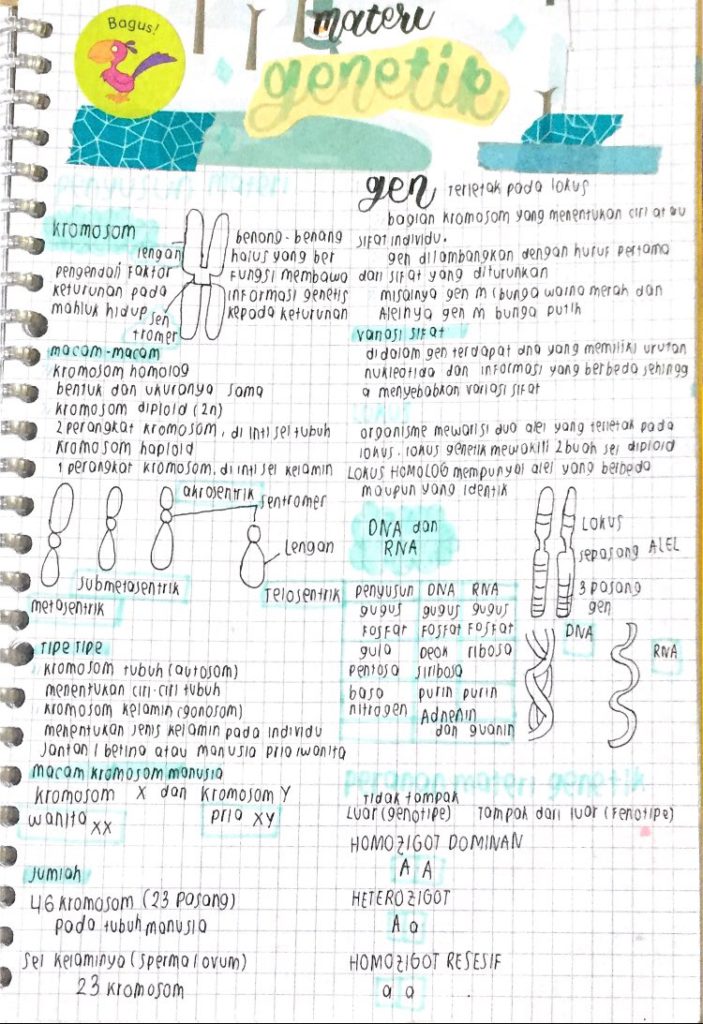 Bagus!
materi
genetik
kromosom
lengan
pengendali faktor
keturunan pada
mahluk hidup
sen
tromer
benang-benang
halus yang ber
fungsi membawa
informasi genetis
kepada keturunan
macam-macam
kromosom homolog
bentuk dan ukuranya sama
kromosom diploid (2n)
2 perangkat kromosom, di inti sel tubuh
kromosom haploid
1 perangkat kromosom, di inti sel kelamin
akrosentrik
sentromer
Lengan
submetasentrik
Telosentrik
metasentrik
Tipe Tipe
kromosom tubuh (autosom)
menentukan ciri-ciri tubuh
kromosom kelamin (gonosom)
menentukan jenis kelamin pada individu
jantan / betina atau manusia pria/wanita
macam kromosom manusia
kromosom X dan kromosom Y
wanita XX
pria XY
Jumlah
46 kromosom (23 pasang)
pada tubuh manusia
sel kelaminya (sperma/ovum)
23 kromosom
gen terletak pada lokus
bagian kromosom yang menentukan ciri atau
sifat individu.
gen dilambangkan dengan huruf pertama
dari sifat yang diturunkan
misalnya gen m (bunga warna merah dan
Alelnya gen m bunga putih
variasi sifat
didalam gen terdapat dna yang memiliki urutan
nukleotida dan informasi yang berbeda sehingg
a menyebabkan variasi sifat
lokus
organisme mewarisi dua alel yang terletak pada
lokus. lokus genetik mewakili 2 buah sel diploid
LOKUS HOMOLOG mempunyai alel yang berbeda
maupun yang identik
DNA dan
RNA
LOKUS
sepasang ALEL
3 pasang
gen
penyusun DNA RNA
gugus gugus gugus
fosfat fosfat fosfat
gula Deok ribosa
pentosa siribosa
basa purin purin
nitrogen Adnenin
dan guanin
DNA
RNA
peranan materi genetik
tidak tampak
Luar (genotipe) Tampak dari luar (Fenotipe)
HOMOZIGOT DOMINAN
A A
HETEROZIGOT
A a
HOMOZIGOT RESESIF
a a